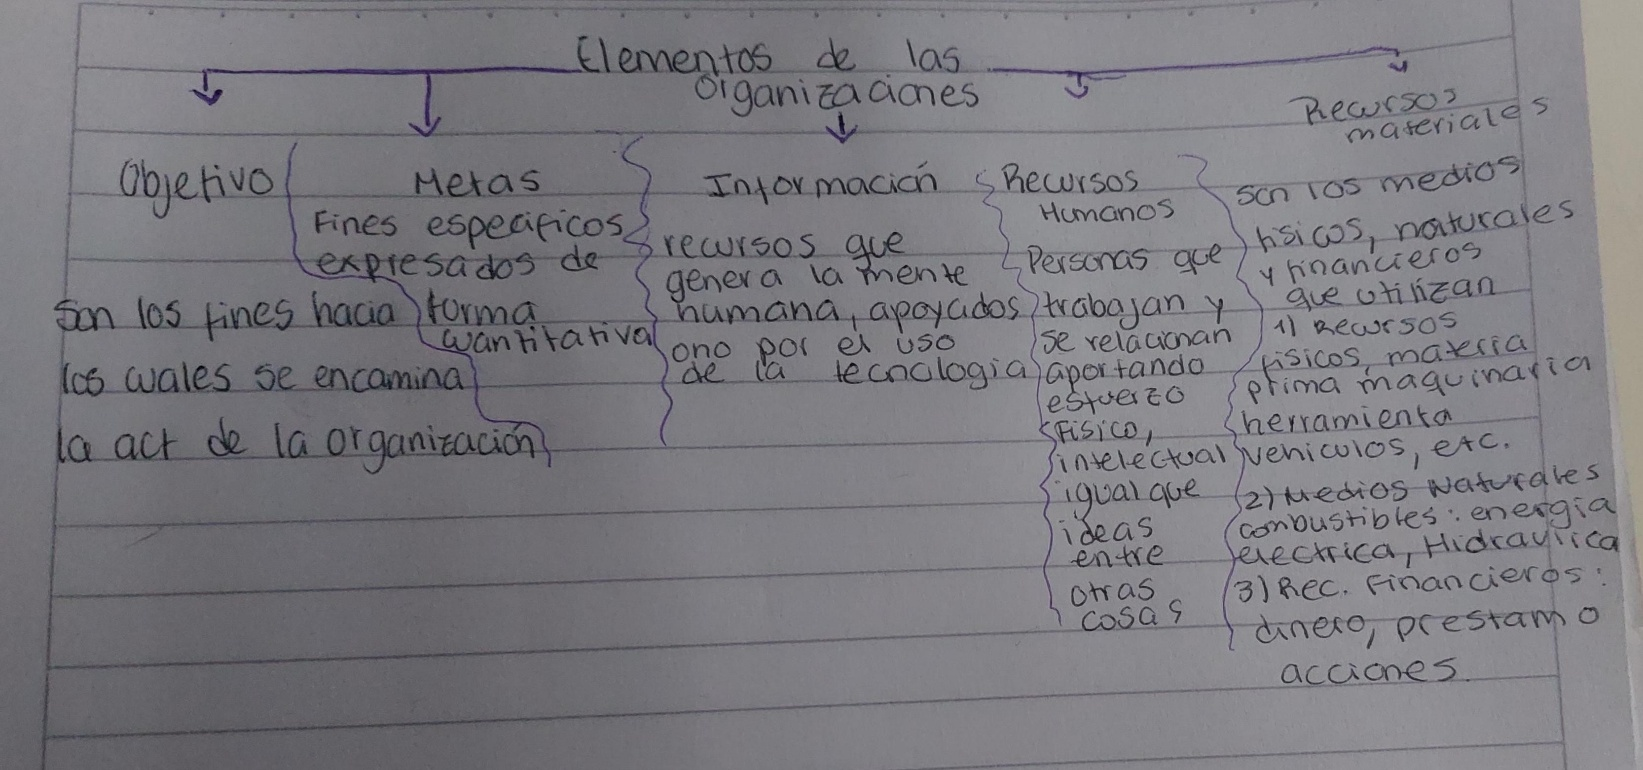 Elementos de las
Organizaciones
Objetivo
Son los fines hacia
los cuales se encamina
la act de la organización
Metas
Fines especificos
expresados de
forma
cuantitativa
Información
recursos que
genera la mente
humana, apoyados
ono por el uso
de la tecnologia
Recursos
Humanos
Personas que
trabajan y
se relacionan
aportando
esfuerzo
Fisico,
intelectual
igual que
ideas
entre
otras
cosas
Recursos
materiales
Son los medios
fisicos, naturales
y financieros
que utilizan
1) Recursos
fisicos, materia
prima maquinaria
herramienta
vehiculos, etc.
2) Medios Naturales
combustibles: energia
electrica, Hidraulica
3) Rec. Financieros:
dinero, prestamo
acciones.